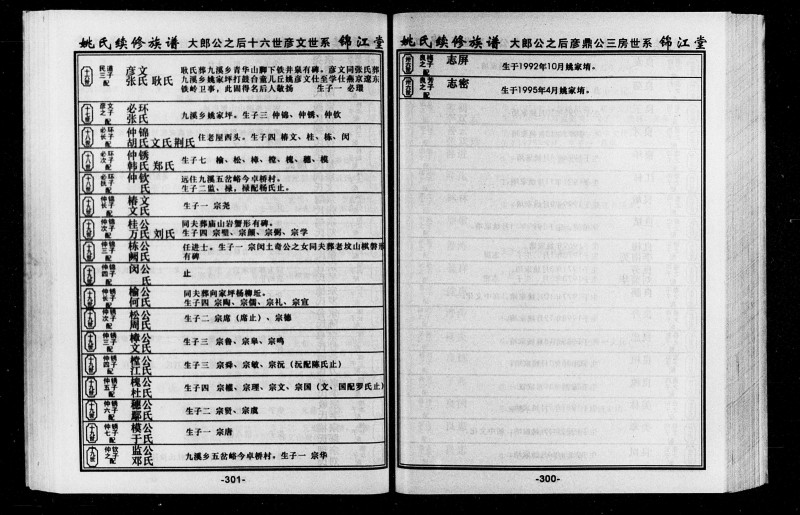 姚氏续修族谱 大郎公之后彦鼎公三房世系 锦江堂
志屏
生于1992年10月姚家堉。
志密
生于1995年4月姚家堉。
-300-
姚氏续修族谱 大郎公之后十六世彦文世系 锦江堂
彦文
张氏 耿氏
耿氏葬九溪乡青华山脚下铁井泉有碑。彦文同张氏葬
九溪乡姚家坪
铁岭卫事,此固得名后人敬扬 生子一 必環
十七世 彦文之子 配
必环
张氏
九溪乡姚家坪。生子三 仲锦、仲锈、仲钦
十八世 必环长子 配
仲锦
胡氏 文氏 荆氏
住老屋西头。生子四 椿文、桂、栋、闵
十八世 必环次子 配
仲锈
韩氏 郑氏
生子七 榆、松、樟、樘、槐、穗、模
仲钦
氏
远住九溪五岔峪今卓桥村。
生子二监、禄,禄配杨氏止。
十九世 仲锦长子 配
椿文
文氏
生子一 宗尧
十九世 仲锦次子 配
桂公
万氏 刘氏
同夫葬庙山岩嘴形有碑。
生子四 宗璧、宗颜、宗弼、宗学
十九世 仲锦三子 配
栋公
阙氏
任进士。生子一 宗闵土奇公之女同夫葬老坟山棋磐形
有碑
十九世 仲锦四子 配
闵公
氏
止
十九世 仲锈长子 配
榆公
何氏
同夫葬向家坪杨柳坵。
生子四 宗陶、宗儒、宗礼、宗宣
十九世 仲锈次子 配
松公
周氏
生子二 宗席(席止)、宗德
十九世 仲锈三子 配
樟公
文氏
生子三 宗鲁、宗皋、宗鸣
十九世 仲锈四子 配
樘公
江氏
生子三 宗舜、宗敏、宗沅(沅配陈氏止)
十九世 仲锈五子 配
槐公
杜氏
生子四 宗權、宗理、宗文、宗国(文、国配罗氏止)
十九世 仲锈六子 配
穗公
鄢氏
生子二 宗贤、宗虞
十九世 仲锈七子 配
模公
于氏
生子一 宗唐
十九世 仲钦之子 配
监公
邓氏
九溪乡五岔峪今卓桥村。生子一 宗华
-301-